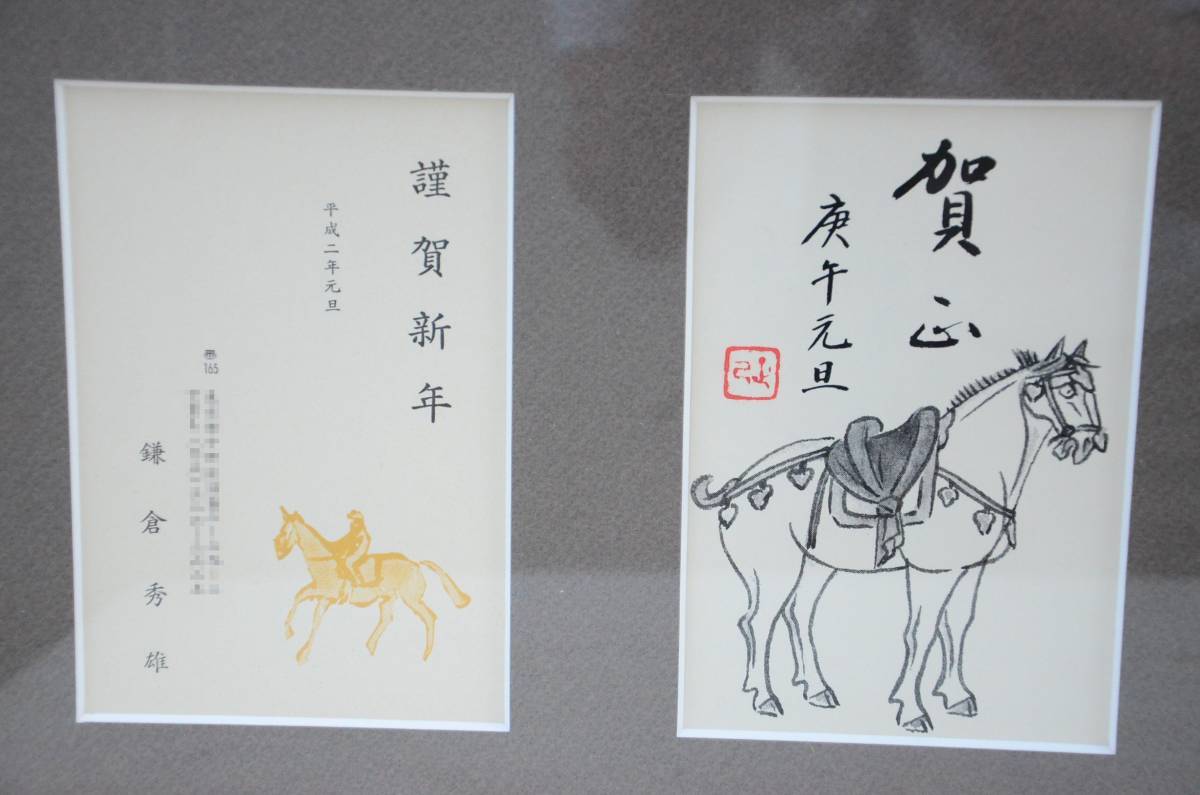 謹賀新年
平成二年元旦
〒165
鎌倉秀雄
賀正
庚午元旦